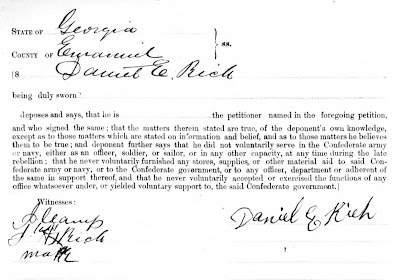 STATE OF Georgia
COUNTY OF Emanuel } ss.
[8 Daniel E. Rich
being duly sworn?
deposes and says, that he is the petitioner named in the foregoing petition,
and who signed the same; that the matters therein stated are true, of the deponent's own knowledge,
except as to those matters which are stated on information and belief, and as to those matters he believes
them to be true; and deponent further says that he did not voluntarily serve in the Confederate army
or navy, either as an officer, soldier, or sailor, or in any other capacity, at any time during the late
rebellion; that he never voluntarily furnished any stores, supplies, or other material aid to said Con-
federate army or navy, or to the Confederate government, or to any officer, department or adherent of
the same in support thereof, and that he never voluntarily accepted or exercised the functions of any
office whatsoever under, or yielded voluntary support to, the said Confederate government.]
Witnesses:
Rich
Daniel E Rich